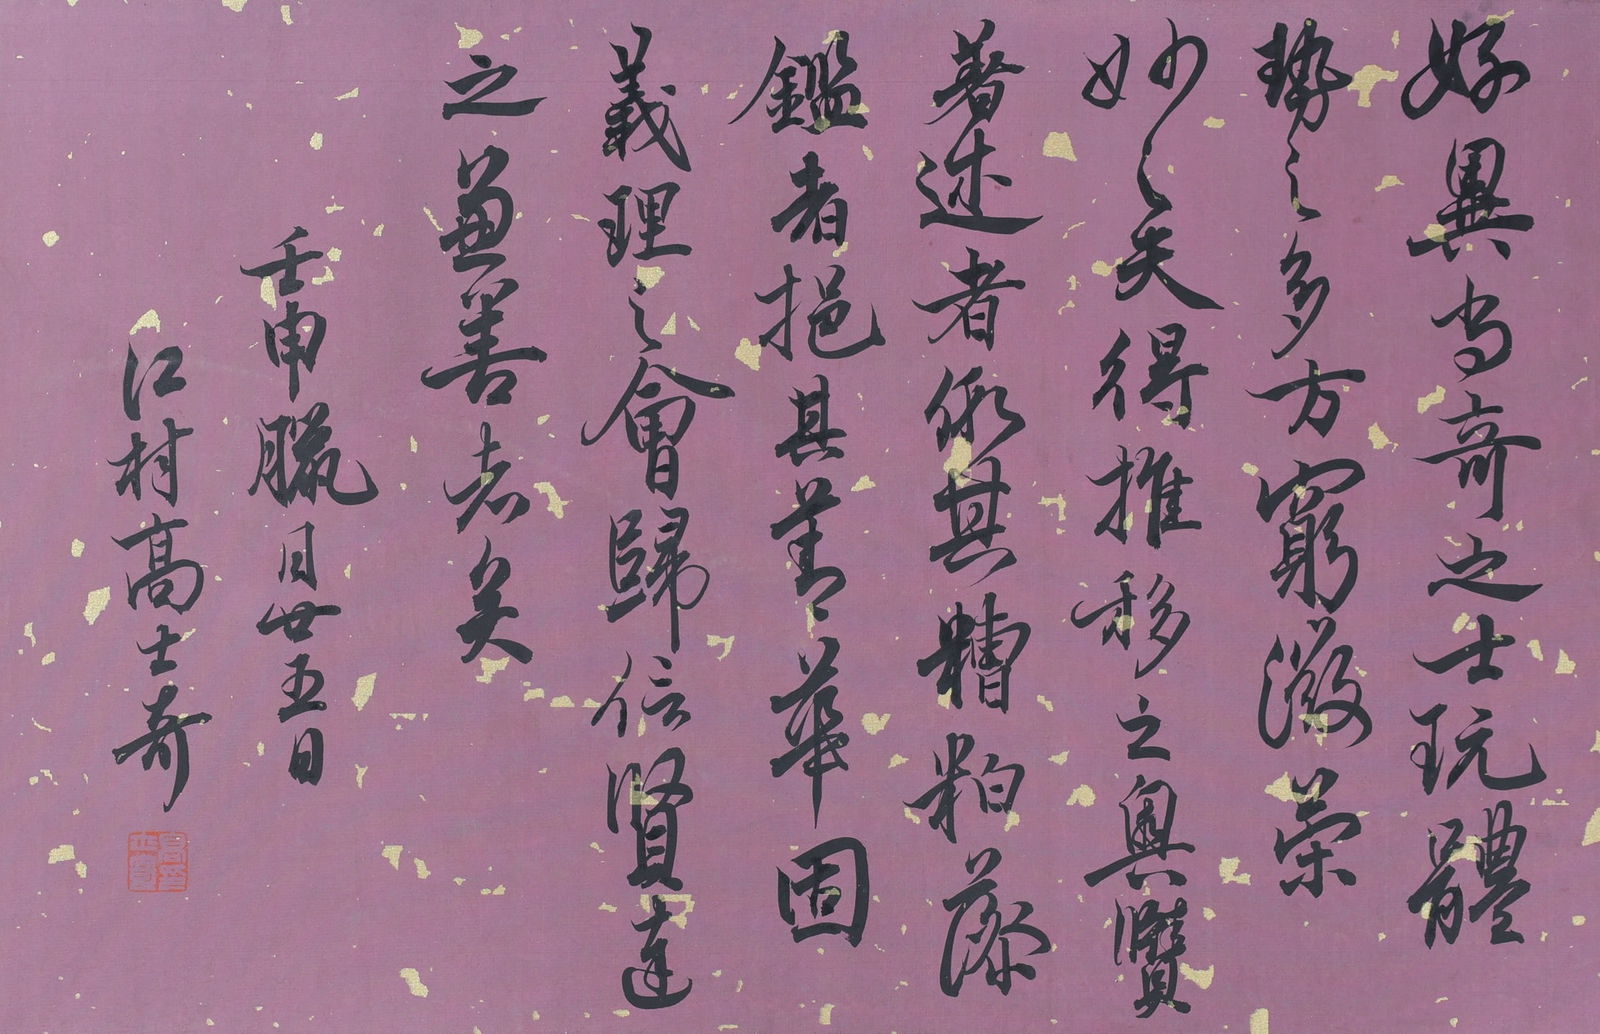 好異尚奇之士玩體
勢之多方窮微
妙之夫得推移之奧賾
著述者假其糟粕藻
鑑者挹其菁華固
義理之會歸信賢達
之兼善者矣
壬申臘月廿五日
江村高士奇